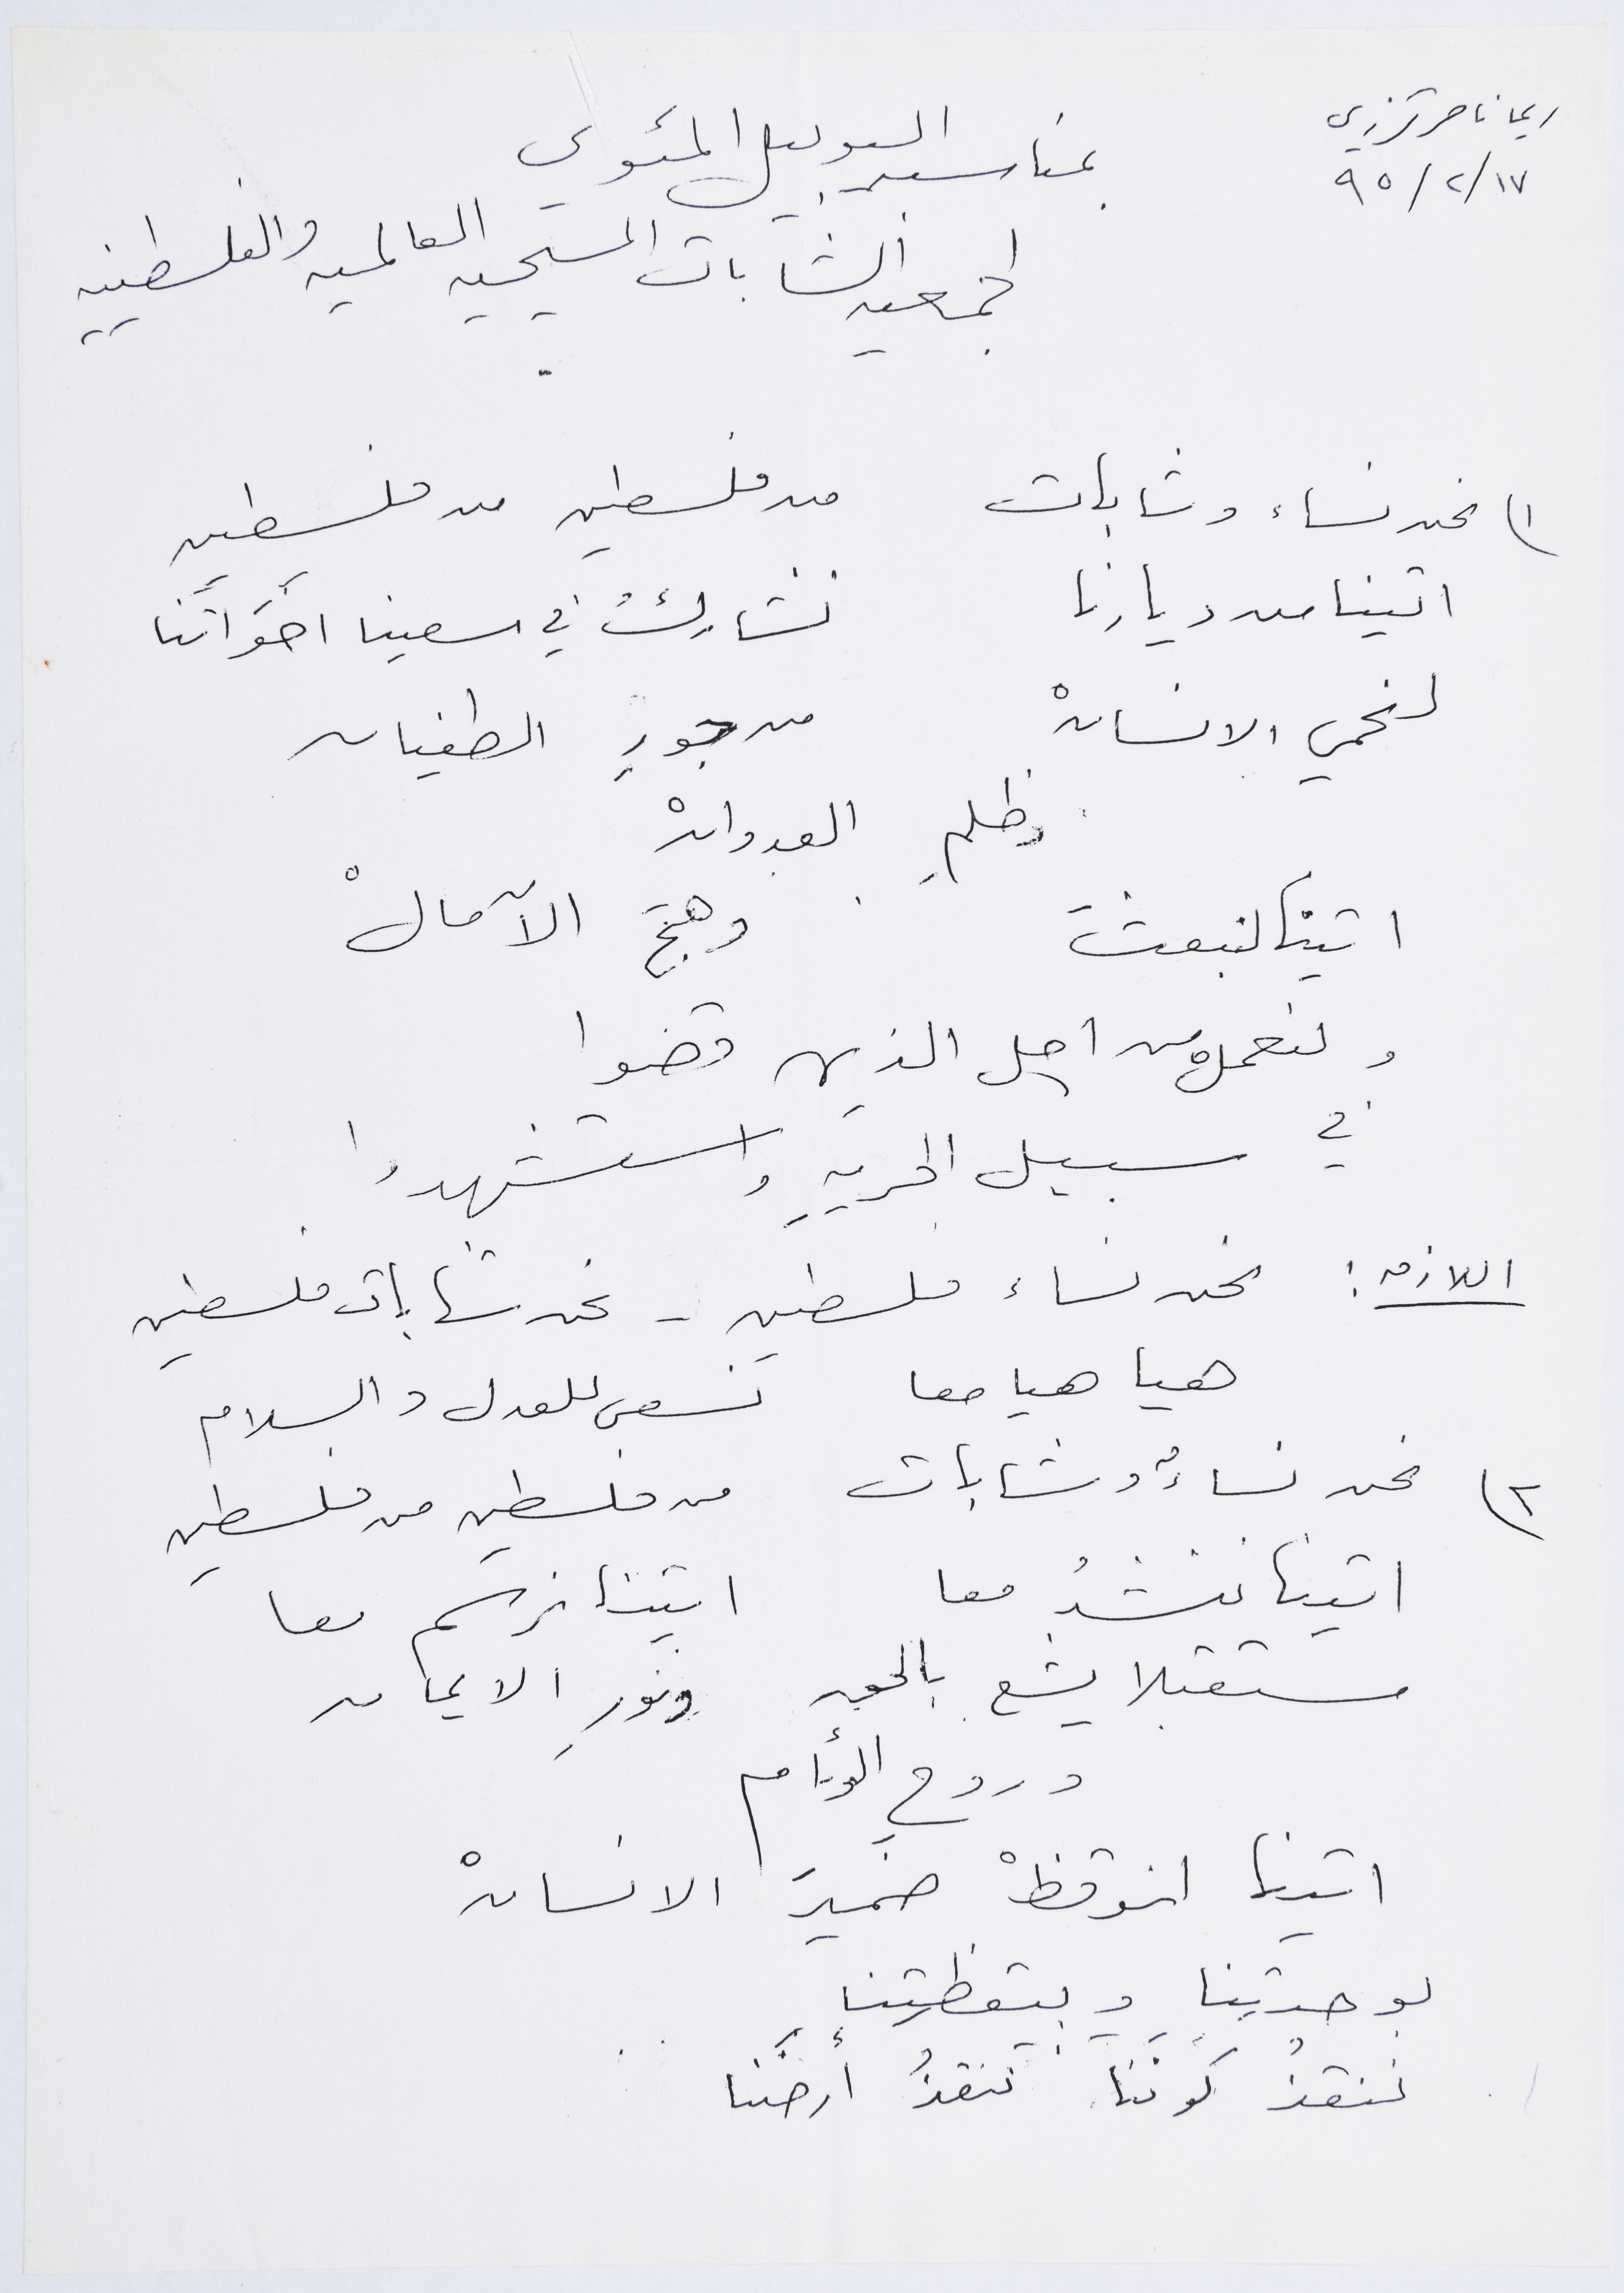 ريما ناصر ترزي
١٧/٢/٩٥
بمناسبة اليوبيل المئوي
لجمعية الشابات المسيحية العالمية والفلسطينية
١) نحن نساء وشابات من فلسطين من فلسطين
اتينا من ديارنا نشاركُ في سعينا اخَوَاتَنا
لنحمي الانسانْ من جورِ الطغيان
وظلمِ العدوانْ
اتينا لنبعثَ وهجَ الآمالْ
ولنعملْ من اجل الذين قضوا
في سبيل الحريةِ واستشهدوا
اللازمة: نحن نساء فلسطين - نحن شابات فلسطين
هيا هيا معا نسعى للعدل والسلام
٢) نحن نساءٌ وشابات من فلسطين من فلسطين
اتينا ننشدُ معا اتينا نرسم معا
مستقبلا يشع بالحب ونورِ الايمان
وروحِ الوئام
اتينا لنوقظْ ضميرَ الانسانْ
بوحدتِنا وبيقظتِنا
ننقذُ كَونَنا ننقذُ أرضَنا